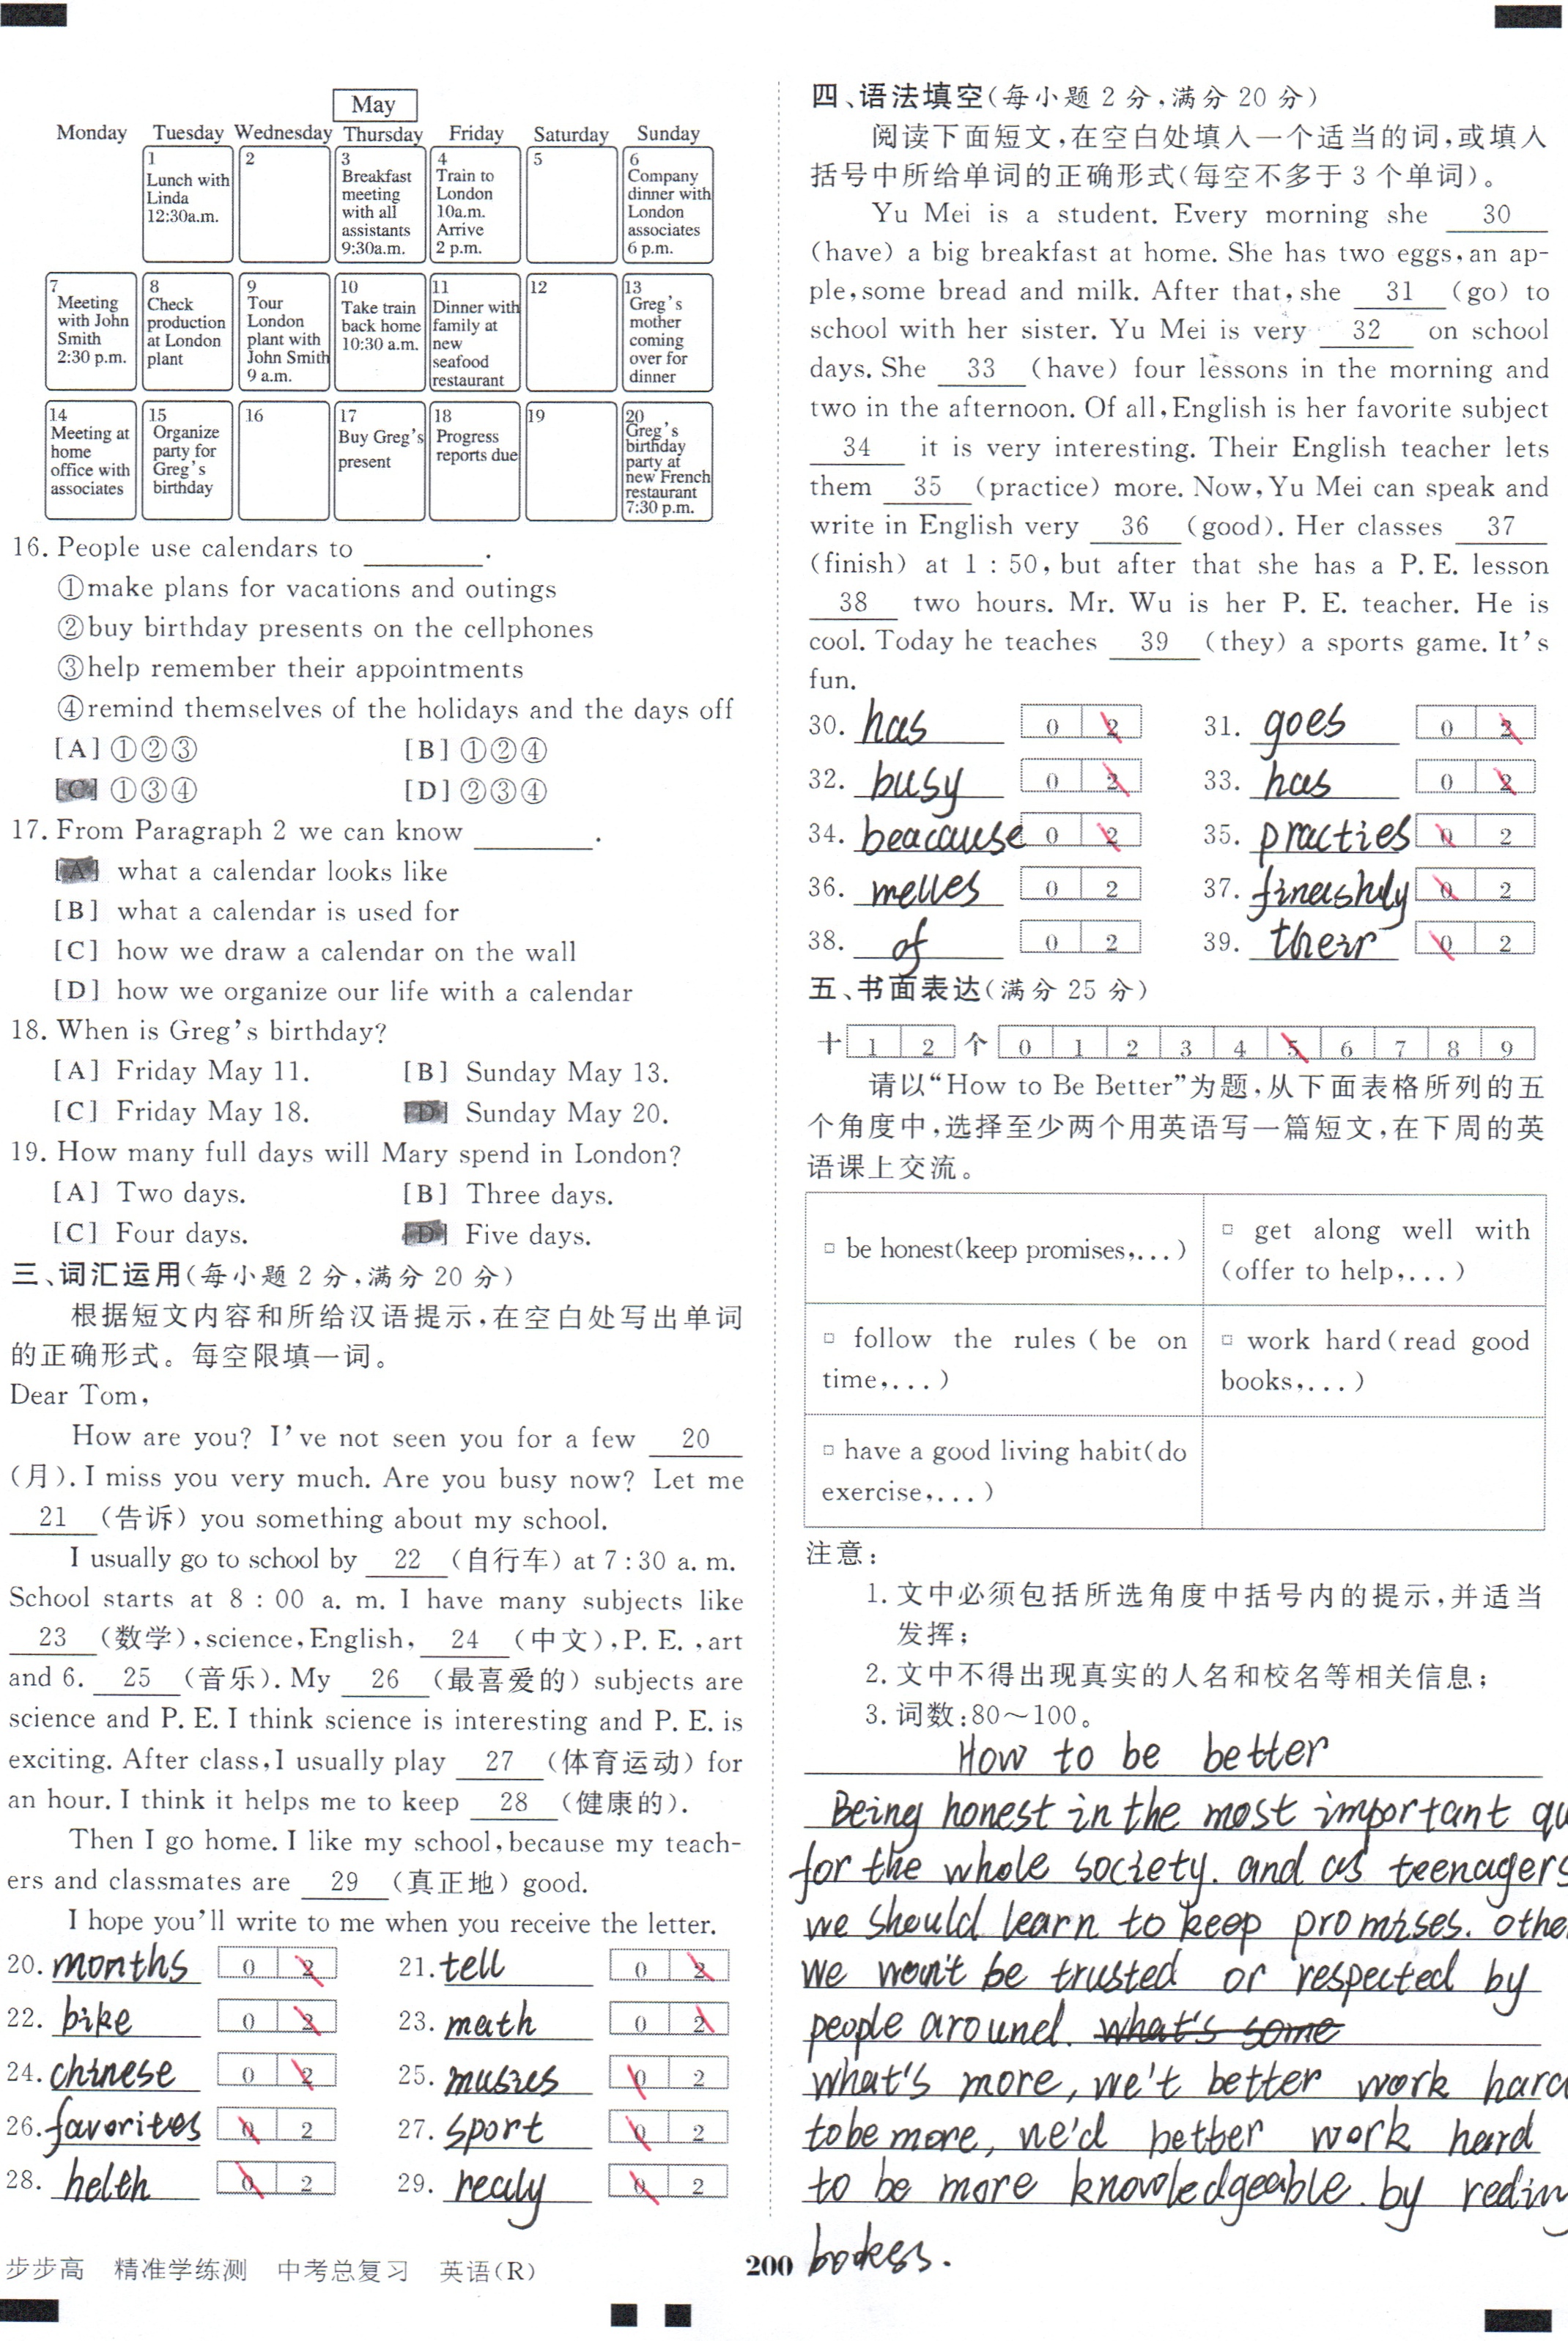 May
Monday Tuesday Wednesday Thursday Friday Saturday Sunday
1 Lunch with Linda 12:30a.m.
2
3 Breakfast meeting with all assistants 9:30a.m.
4 Train to London 10a.m. Arrive 2 p.m.
5
6 Company dinner with London associates 6 p.m.
7 Meeting with John Smith 2:30 p.m.
8 Check production at London plant
9 Tour London plant with John Smith 9 a.m.
10 Take train back home 10:30 a.m.
11 Dinner with family at new seafood restaurant
12
13 Greg's mother coming over for dinner
14 Meeting at home office with associates
15 Organize party for Greg's birthday
16
17 Buy Greg's present
18 Progress reports due
19
20 Greg's birthday party at new French restaurant 7:30 p.m.
16. People use calendars to ________.
①make plans for vacations and outings
②buy birthday presents on the cellphones
③help remember their appointments
④remind themselves of the holidays and the days off
[A] ①②③ [B] ①②④
[C] ①③④ [D] ②③④
17. From Paragraph 2 we can know ________.
[A] what a calendar looks like
[B] what a calendar is used for
[C] how we draw a calendar on the wall
[D] how we organize our life with a calendar
18. When is Greg's birthday?
[A] Friday May 11. [B] Sunday May 13.
[C] Friday May 18. [D] Sunday May 20.
19. How many full days will Mary spend in London?
[A] Two days. [B] Three days.
[C] Four days. [D] Five days.
三、词汇运用(每小题 2 分,满分 20 分)
根据短文内容和所给汉语提示,在空白处写出单词
的正确形式。每空限填一词。
Dear Tom,
How are you? I've not seen you for a few 20
(月). I miss you very much. Are you busy now? Let me
21 (告诉) you something about my school.
I usually go to school by 22 (自行车) at 7:30 a. m.
School starts at 8 : 00 a. m. I have many subjects like
23 (数学),science,English, 24 (中文),P. E. ,art
and 6. 25 (音乐). My 26 (最喜爱的) subjects are
science and P. E. I think science is interesting and P. E. is
exciting. After class,I usually play 27 (体育运动) for
an hour. I think it helps me to keep 28 (健康的).
Then I go home. I like my school,because my teach-
ers and classmates are 29 (真正地) good.
I hope you'll write to me when you receive the letter.
20. months 0 2 21. tell 0 2
22. bike 0 2 23. math 0 2
24. chinese 0 2 25. musies 0 2
26. favorites 0 2 27. sport 0 2
28. helth 0 2 29. realy 0 2
步步高 精准学练测 中考总复习 英语(R)
200
四、语法填空(每小题 2 分,满分 20 分)
阅读下面短文,在空白处填入一个适当的词,或填入
括号中所给单词的正确形式(每空不多于 3 个单词)。
Yu Mei is a student. Every morning she 30
(have) a big breakfast at home. She has two eggs,an ap-
ple,some bread and milk. After that,she 31 (go) to
school with her sister. Yu Mei is very 32 on school
days. She 33 (have) four lessons in the morning and
two in the afternoon. Of all,English is her favorite subject
34 it is very interesting. Their English teacher lets
them 35 (practice) more. Now,Yu Mei can speak and
write in English very 36 (good). Her classes 37
(finish) at 1 : 50,but after that she has a P. E. lesson
38 two hours. Mr. Wu is her P. E. teacher. He is
cool. Today he teaches 39 (they) a sports game. It's
fun.
30. has 0 2 31. goes 0 2
32. busy 0 2 33. has 0 2
34. beacause 0 2 35. practies 0 2
36. melles 0 2 37. 0 2
38. of 0 2 39. their 0 2
五、书面表达(满分 25 分)
十 1 2 个 0 1 2 3 4 5 6 7 8 9
请以“How to Be Better”为题,从下面表格所列的五
个角度中,选择至少两个用英语写一篇短文,在下周的英
语课上交流。
□ be honest(keep promises,...)
□ get along well with
(offer to help,...)
□ follow the rules ( be on
time,...)
□ work hard(read good
books,...)
□ have a good living habit(do
exercise,...)
注意:
1. 文中必须包括所选角度中括号内的提示,并适当
发挥;
2. 文中不得出现真实的人名和校名等相关信息;
3. 词数:80～100。
How to be better
Being honest in the most important qu
for the whole society. and as teenagers
we should learn to keep promises. othe
we won't be trusted or respected by
people around. what's some
what's more, we't better work hard
to be more, we'd better work hard
to be more knowledgeable. by redin